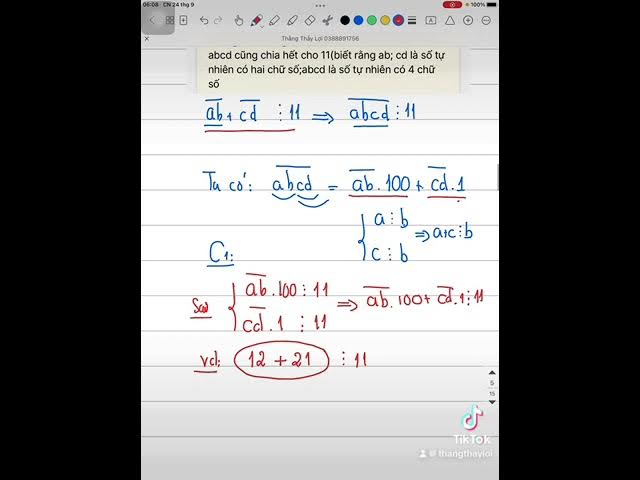 06:08 CN 24 thg 9
100%
Thắng Thầy Lợi 0388891756
abcd cũng chia hết cho 11(biết rằng ab; cd là số tự
nhiên có hai chữ số;abcd là số tự nhiên có 4 chữ
số
a͞b + c͞d ⋮ 11 ⇒ a͞b͞c͞d ⋮ 11
Ta có: a͞b͞c͞d = a͞b.100 + c͞d.1
{ a ⋮ b
c ⋮ b ⇒ a+c ⋮ b
C1:
Sai { a͞b.100 ⋮ 11
c͞d.1 ⋮ 11 ⇒ a͞b.100 + c͞d.1 ⋮ 11
vd: 12 + 21 ⋮ 11
5
15
TikTok
@thangthayloi